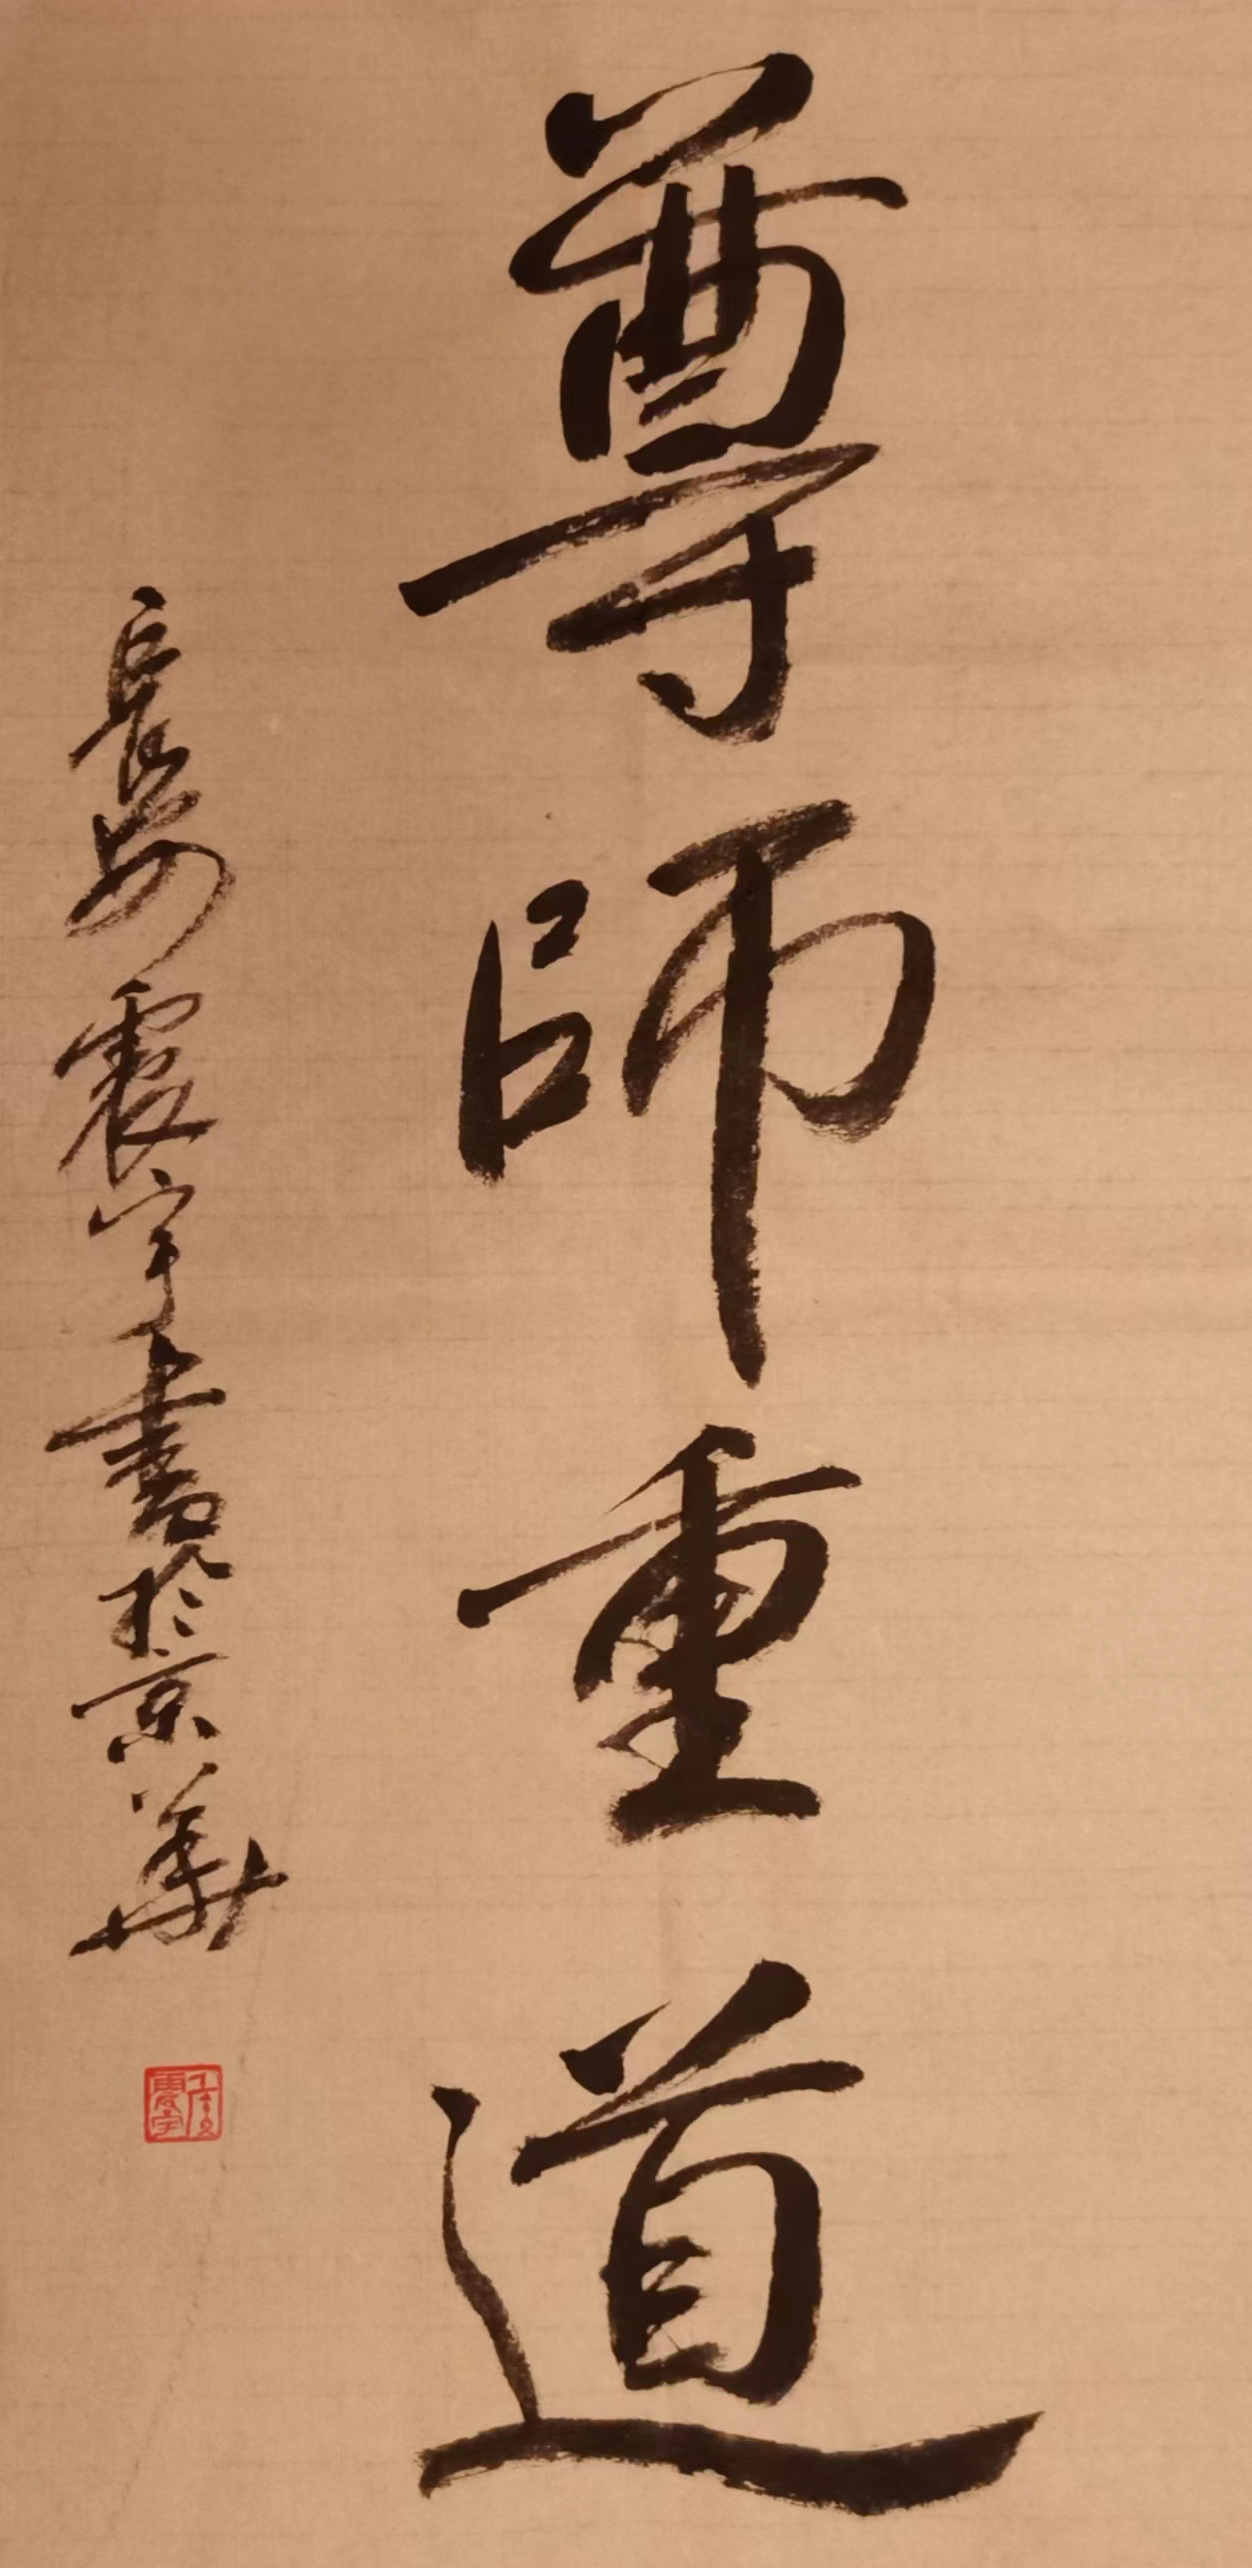 尊師重道
長安震宇書於京華
震宇